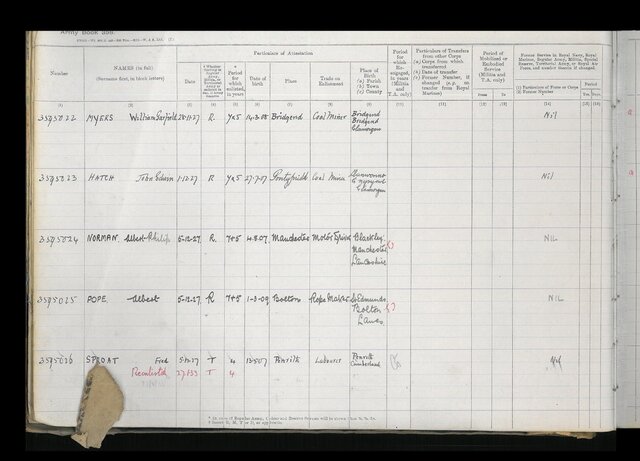 Army Book 358.
Particulars of Attestation
Number
NAMES (in full)
(Surname first, in block letters)
Date
Period for which enlisted, in years
Date of birth
Place
Trade on Enlistment
Place of Birth
(a) Parish
(b) Town
(c) County
Period for which Re-engaged, in years (Militia and T.A. only)
Particulars of Transfers from other Corps
(a) Corps from which transferred
(b) Date of transfer
(c) Former Number, if changed
Period of Mobilized or Embodied Service (Militia and T.A. only)
From
To
Former Service in Royal Navy, Royal Marines, Regular Army, Militia, Special Reserve, Territorial Army, or Royal Air Force, and number therein if changed
(1) Particulars of Force or Corps
(2) Former Number
Period
3595022 MYERS William Garfield 28-11-27 R. 7&5 14-3-08 Bridgend Coal Miner Bridgend Nil
Bridgend
Glamorgan
3595023 HATCH John Edwin 1-12-27 R 7&5 27-7-07 Pontypridd Coal Miner Nil
Glamorgan
3595024 NORMAN Albert Philip 5-12-27 R. 7&5 Manchester Motor Driver Blackley NIL
Manchester
Lancashire
3595025 POPE Albert 5-12-27 R 7&5 1-3-09 Bolton Rope Maker St Edmunds NIL
Bolton
Lancs
3595026 SPROAT Fred 5-12-27 T 4 Penrith Labourer Penrith
Cumberland
Reenlisted T 4